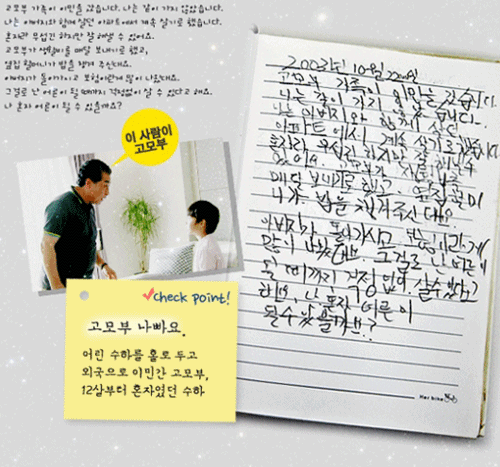 고모부 가족이 이민을 갔습니다. 나는 같이 가지 않았습니다.
나는 아버지와 함께 살던 아파트에서 계속 살기로 했습니다.
혼자라 무섭긴 하지만 잘 해낼 수 있어요.
고모부가 생활비를 매달 보내기로 했고,
옆집 할머니가 밥을 챙겨 주신대요.
아버지가 돌아가시고 보험이란게 많이 나왔대요.
그걸로 난 어른이 될 때까지 걱정없이 살 수 있다고 해요.
나 혼자 어른이 될 수 있을까요?
이 사람이
고모부
check point!
고모부 나빠요.
어린 수하를 홀로 두고
외국으로 이민간 고모부,
12살부터 혼자였던 수하
10월 22일
고모부 가족이 이민을 갔습니다.
나는 같이 가지 습니다.
나는 아버지와 함께 살던
아파트에서 계속 살기로 했습니다
혼자라 무섭긴 하지만 잘 해낼수
있어요. 고모부가
매달 보내기로 했고
가 밥을 챙겨주신대요.
아버지가 돌아가시고 보험이란게
많이 나왔대요. 그걸로 난 어른이
될 때까지 걱정 없이 살수있다고
해요. 난 혼자 어른이
될수 있을까요?